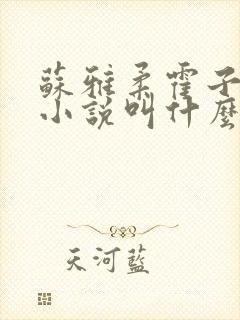 蘇雅柔霍子
小說叫什麼
天河藍